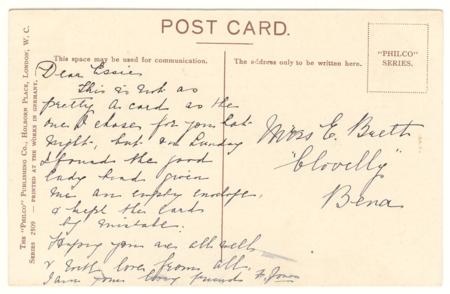 POST CARD.
This space may be used for communication.
The address only to be written here.
"PHILCO"
SERIES.
THE "PHILCO" PUBLISHING CO., HOLBORN PLACE, LONDON, W. C.
SERIES 2509 — PRINTED AT THE WORKS IN GERMANY.
Dear Essie
This is not as
pretty a card as the
one I chose for you Sat
night, but on Sunday
I found the good
lady had given
me an empty envelope,
& kept the cards
by mistake.
Hoping you are all well
& with love from all,
I am your friend
Miss E. Brett
"Clovelly"
Bena